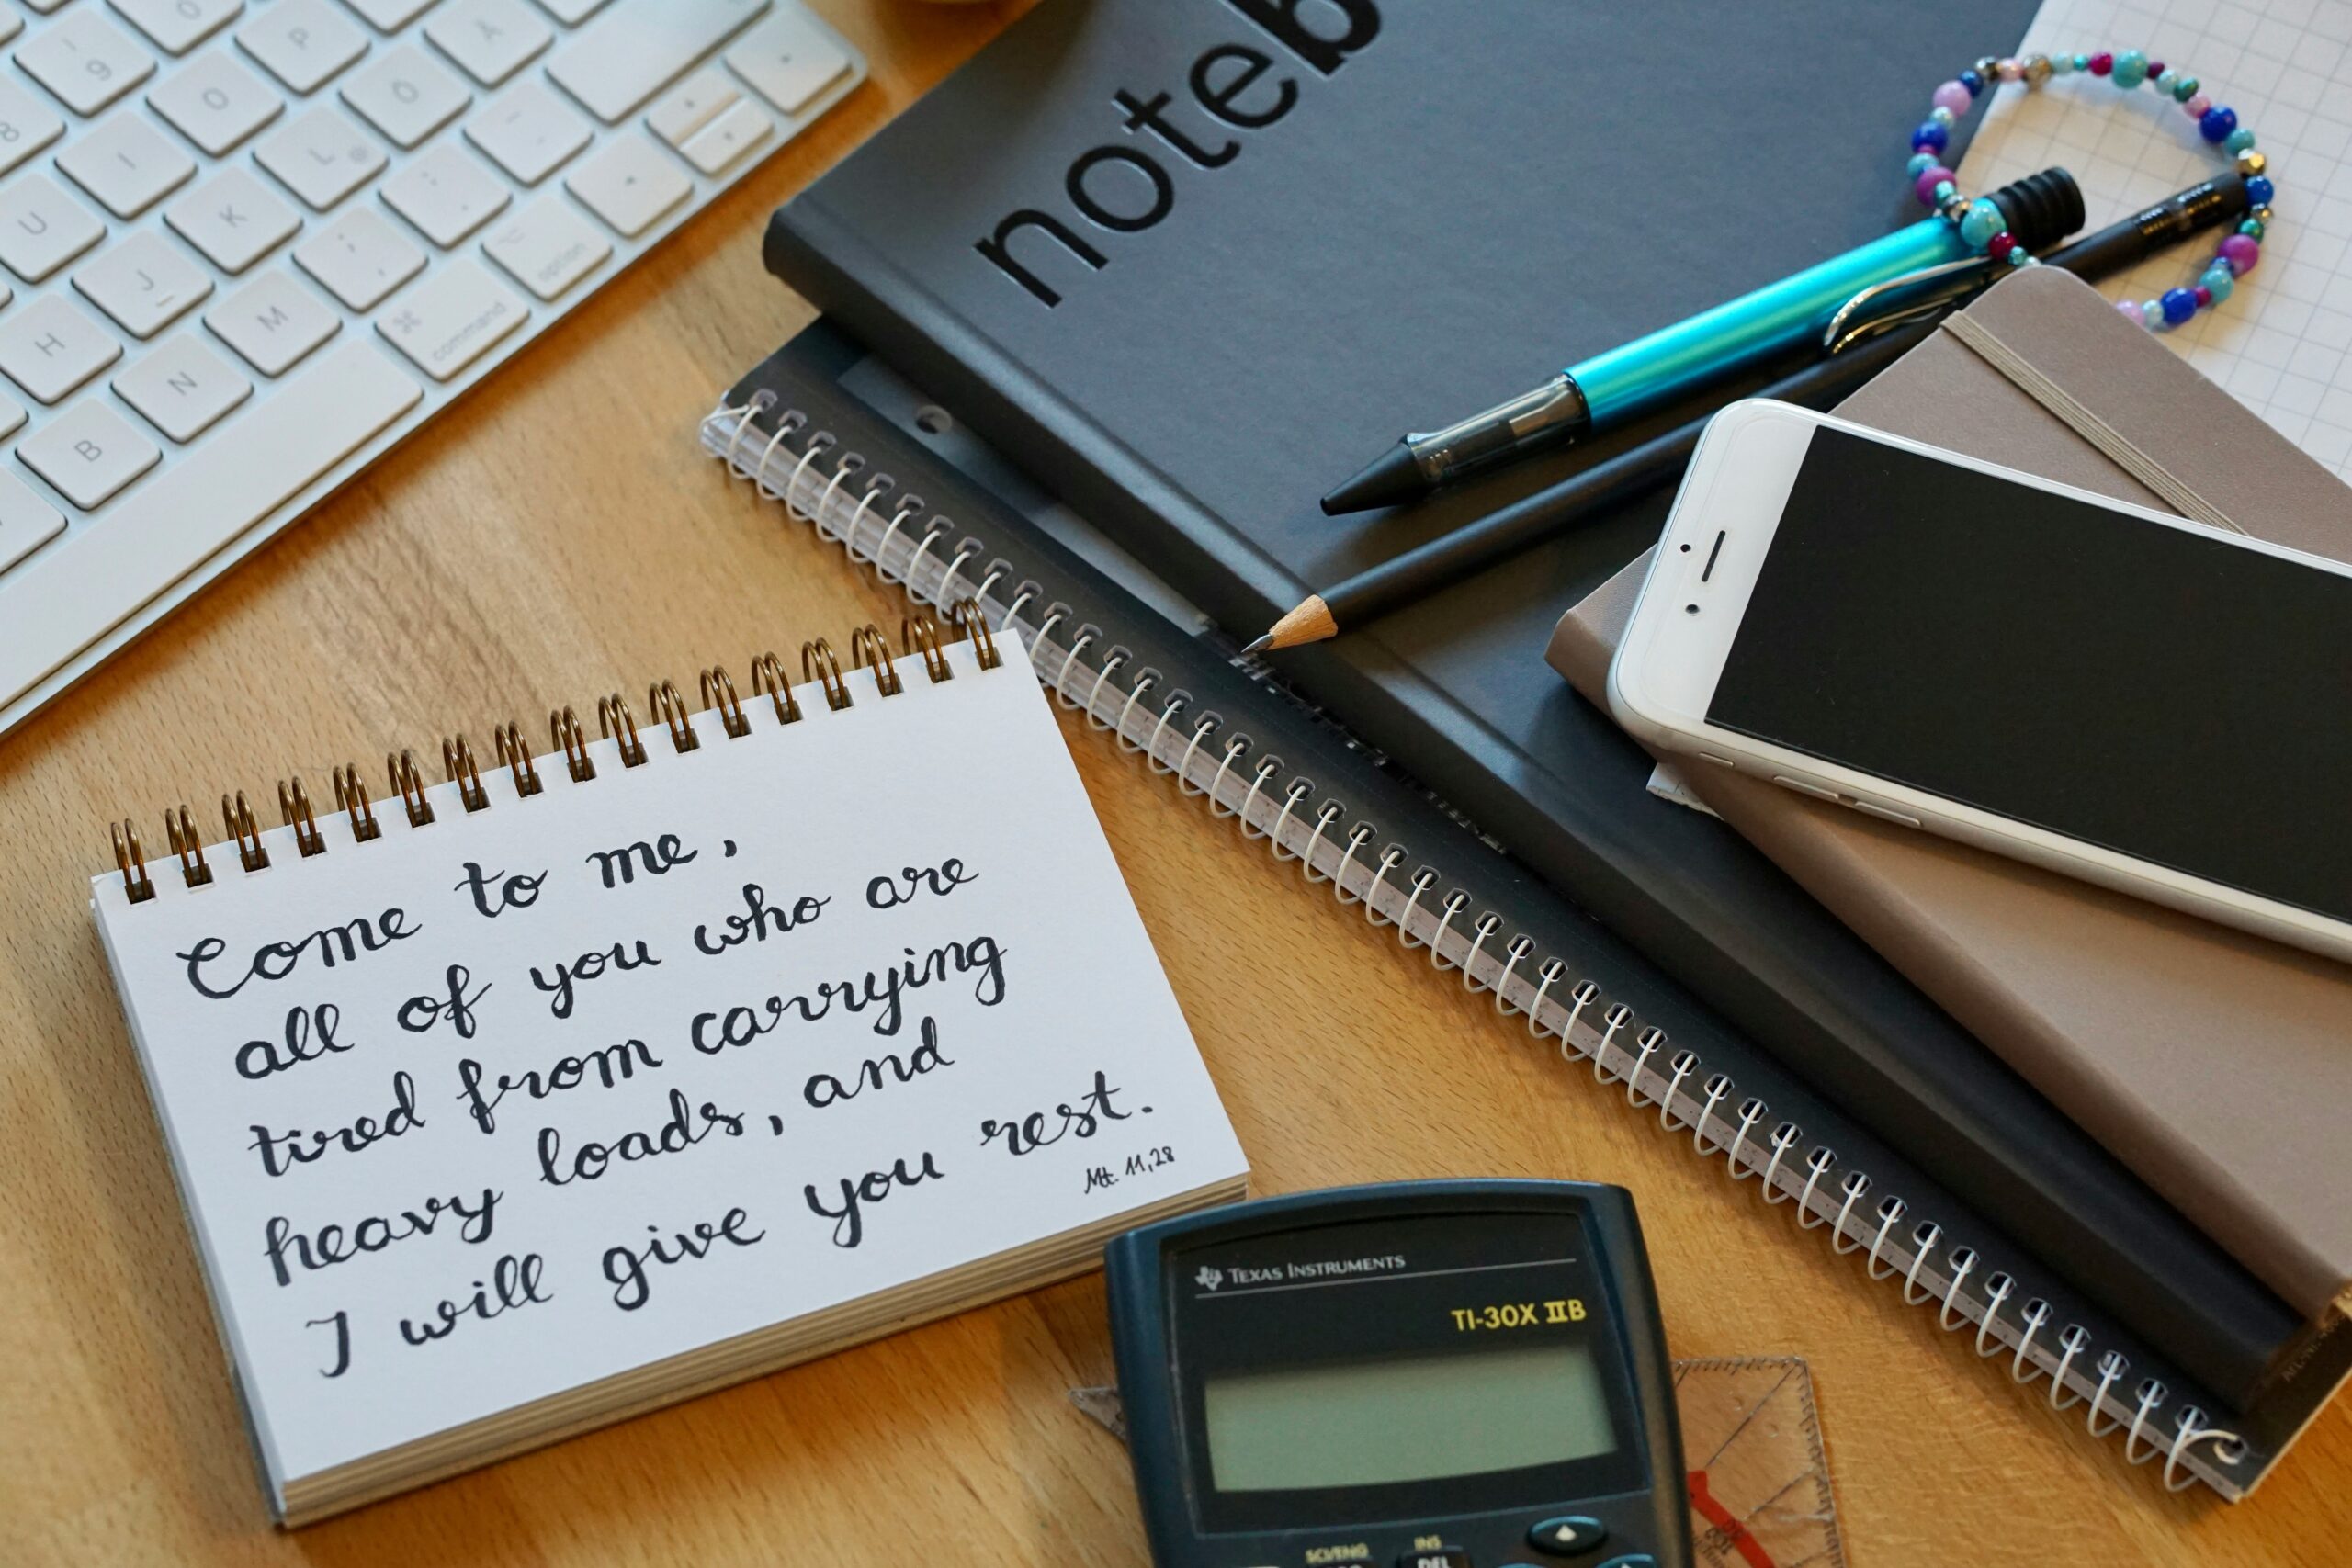 9
P
Å
8
O
Ö
-
I
L @
:
U
K
;
option
J
⌘
command
H
M
N
B
noteb
Come to me,
all of you who are
tired from carrying
heavy loads, and
I will give you rest.
Mt. 11,28
TEXAS INSTRUMENTS
TI-30X IIB
SCI/ENG INS
DEL